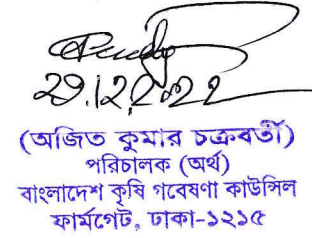 29.12.2022
(অজিত কুমার চক্রবর্তী)
পরিচালক (অর্থ)
বাংলাদেশ কৃষি গবেষণা কাউন্সিল
ফার্মগেট, ঢাকা-১২১৫